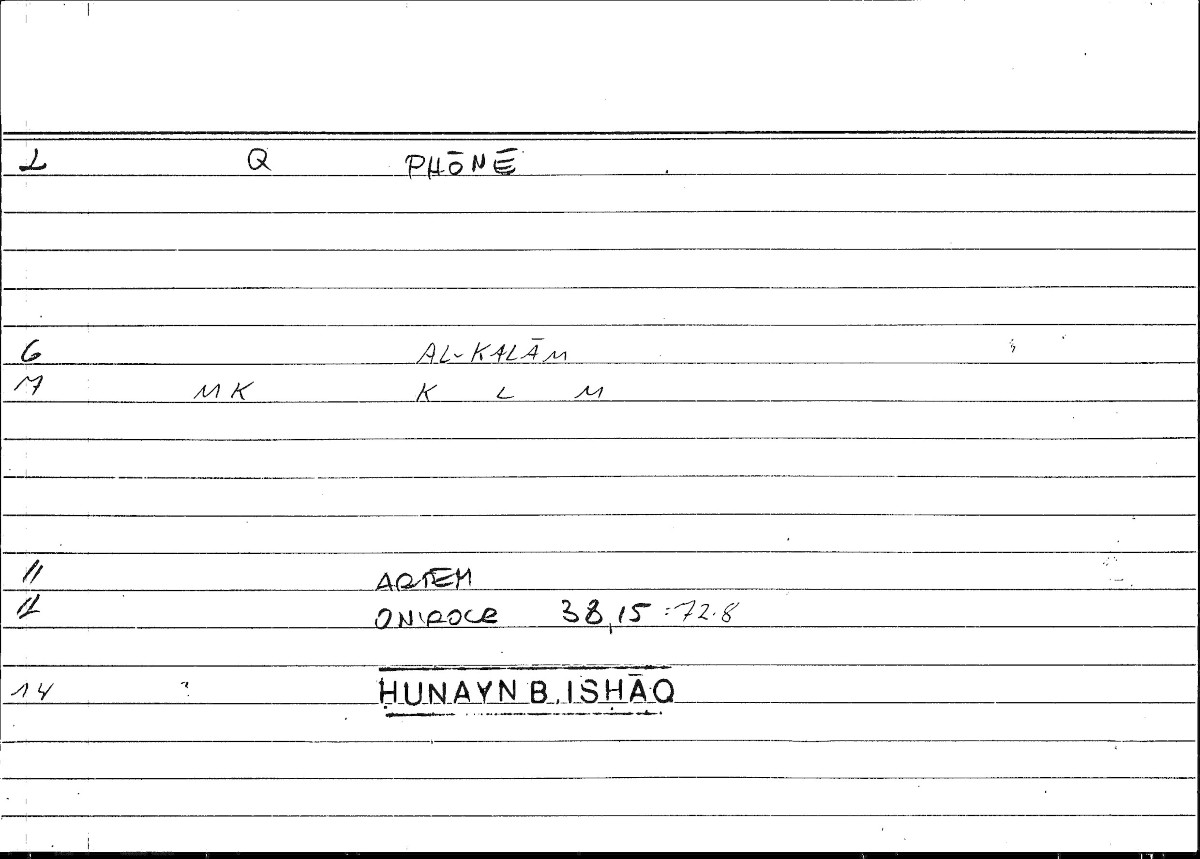 2 Q PHŌNĒ
6 AL-KALĀM
7 MK K L M
11 ARTEM
12 ONIROCR 38,15 :72.8
14 ? ḤUNAYN B. ISḤĀQ